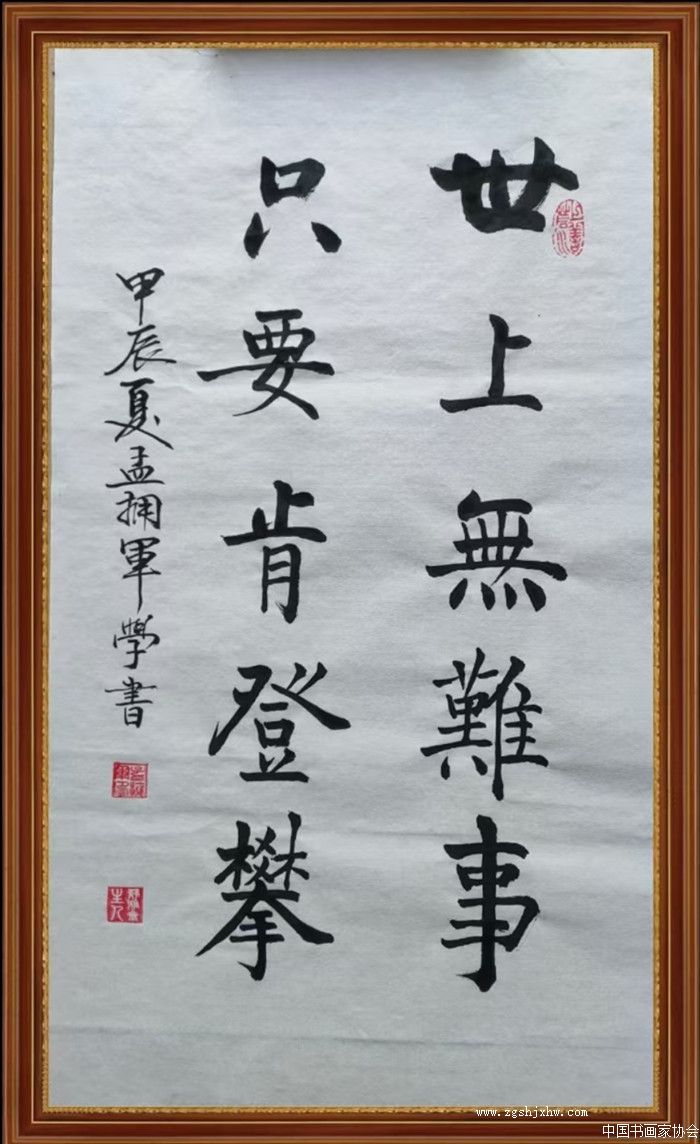 世上無難事
只要肯登攀
甲辰夏孟拥軍學書
上善若水
www.zgshjxhw.com
中国书画家协会